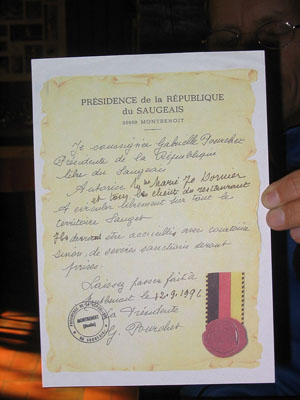 PRÉSIDENCE de la RÉPUBLIQUE
du SAUGEAIS
25650 MONTBENOIT
Je soussignée Gabrielle Pourchet
Présidente de la République
libre du Saugeais
Autorise Mme Marie Jo Dornier
et tous les client du restaurant
A circuler librement sur tout le
territoire Sauget
Ils devront être accueillis avec courtoisie
sinon, de sévères sanctions seront
prises.
Laissez passer fait à
Montbenoit le 12.9.1996
La Présidente
G. Pourchet
MONTBENOIT
(Doubs)